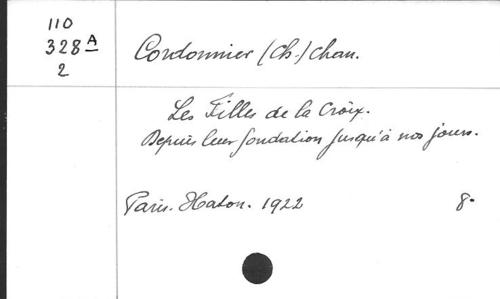 110
328 A
2
Cordonnier (Ch.) chan.
Les Filles de la Croix.
Depuis leur fondation jusqu'à nos jours.
Paris. Haton. 1922 8°